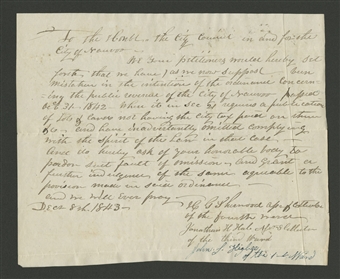 To the Honbl. the City Council in and for the
City of Nauvoo
We your petitioners would hereby set
forth, that we have, as we now suppose been
mistaken in the intention of the ordinance concern-
ing the public revenue of the City of Nauvoo passed
Oct 31. 1842. When it in sec 2 requires a publication
of lots & lands not having the city tax paid on them
&c. and have inadvertently omitted complying
with the spirit of the law in that case
and do hereby ask of your honorable body to
pardon said fault of omission, and grant a
further indulgence of the same agreeable to the
provision made in said ordinance
and we will ever pray
Decr 8th 1843
of the fourth ward
Jonathan H. Hale Asr & Collector
of the Third Ward
John S. Higbee
of the 1st Ward